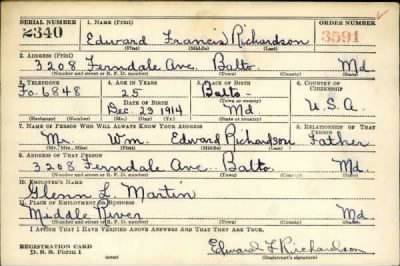 SERIAL NUMBER 1. NAME (Print) ORDER NUMBER
2340 Edward Francis Richardson 3591
(First) (Middle) (Last)
2. ADDRESS (Print)
3208 Ferndale Ave. Balto. Md
(Number and street or R. F. D. number) (Town) (County) (State)
3. TELEPHONE 4. AGE IN YEARS 5. PLACE OF BIRTH 6. COUNTRY OF CITIZENSHIP
Fo. 6848 25 Balto-
DATE OF BIRTH (Town or county)
Dec 23 1914 Md U.S.A.
(Exchange) (Number) (Mo.) (Day) (Yr.) (State or country)
7. NAME OF PERSON WHO WILL ALWAYS KNOW YOUR ADDRESS 8. RELATIONSHIP OF THAT PERSON
Mr. Wm. Edward Richardson Father
(Mr., Mrs., Miss) (First) (Middle) (Last)
9. ADDRESS OF THAT PERSON
3208 Ferndale Ave. Balto. Md.
(Number and street or R. F. D. number) (Town) (County) (State)
10. EMPLOYER'S NAME
Glenn L. Martin
11. PLACE OF EMPLOYMENT OR BUSINESS
Middle River Md
(Number and street or R. F. D. number) (Town) (County) (State)
I AFFIRM THAT I HAVE VERIFIED ABOVE ANSWERS AND THAT THEY ARE TRUE.
REGISTRATION CARD
D. S. S. Form 1 Edward F Richardson
(Registrant's signature)